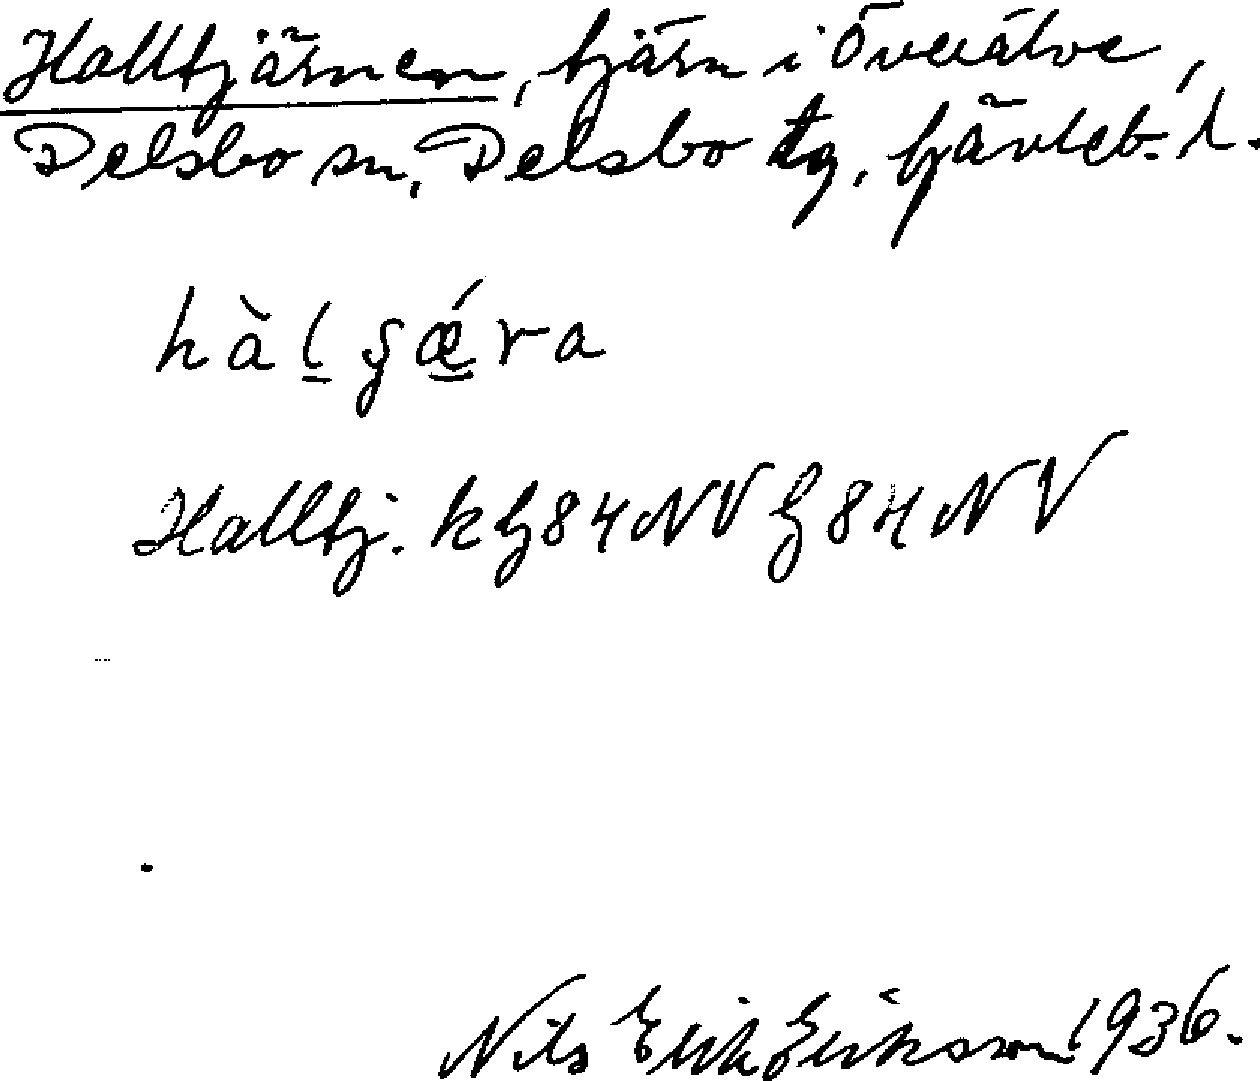 Halltjärnen, tjärn i Överälve,
Delsbo sn, Delsbo tg, Gävleb. l.
hàl ʂǽra
Halltj. k G84NV G84NV
Nils Erik Eriksson 1936.